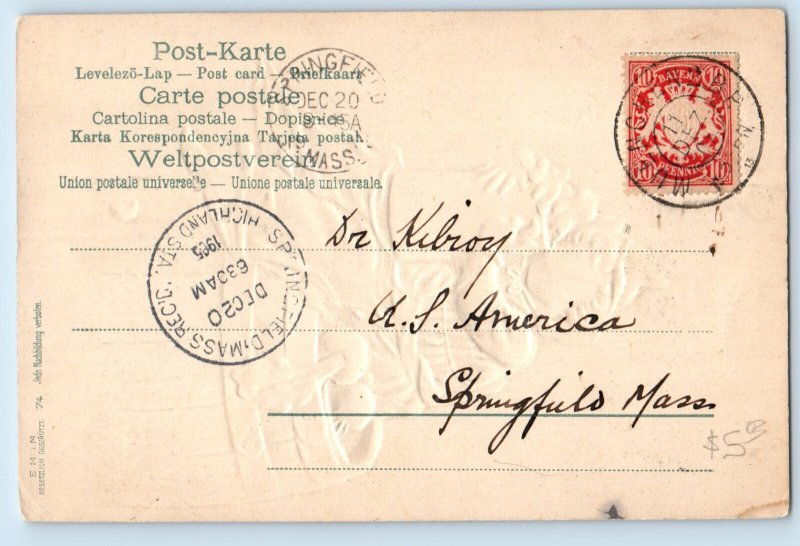 Post-Karte
Levelező-Lap — Post card — Briefkaart
Carte postale
Cartolina postale — Dopisnice
Karta Korespondencyjna Tarjeta postal
Weltpostverein
Union postale universelle — Unione postale universale.
SPRINGFIELD
DEC 20
MASS.
10 BAYERN 10
10 PFENNIG 10
SPRINGFIELD, MASS. REC'D.
HIGHLAND STA.
1905
630AM
DEC 20
Dr Kibroy
U. S. America
Springfield Mass
$5
E. M. i. M.
74 Jede Nachbildung verboten.